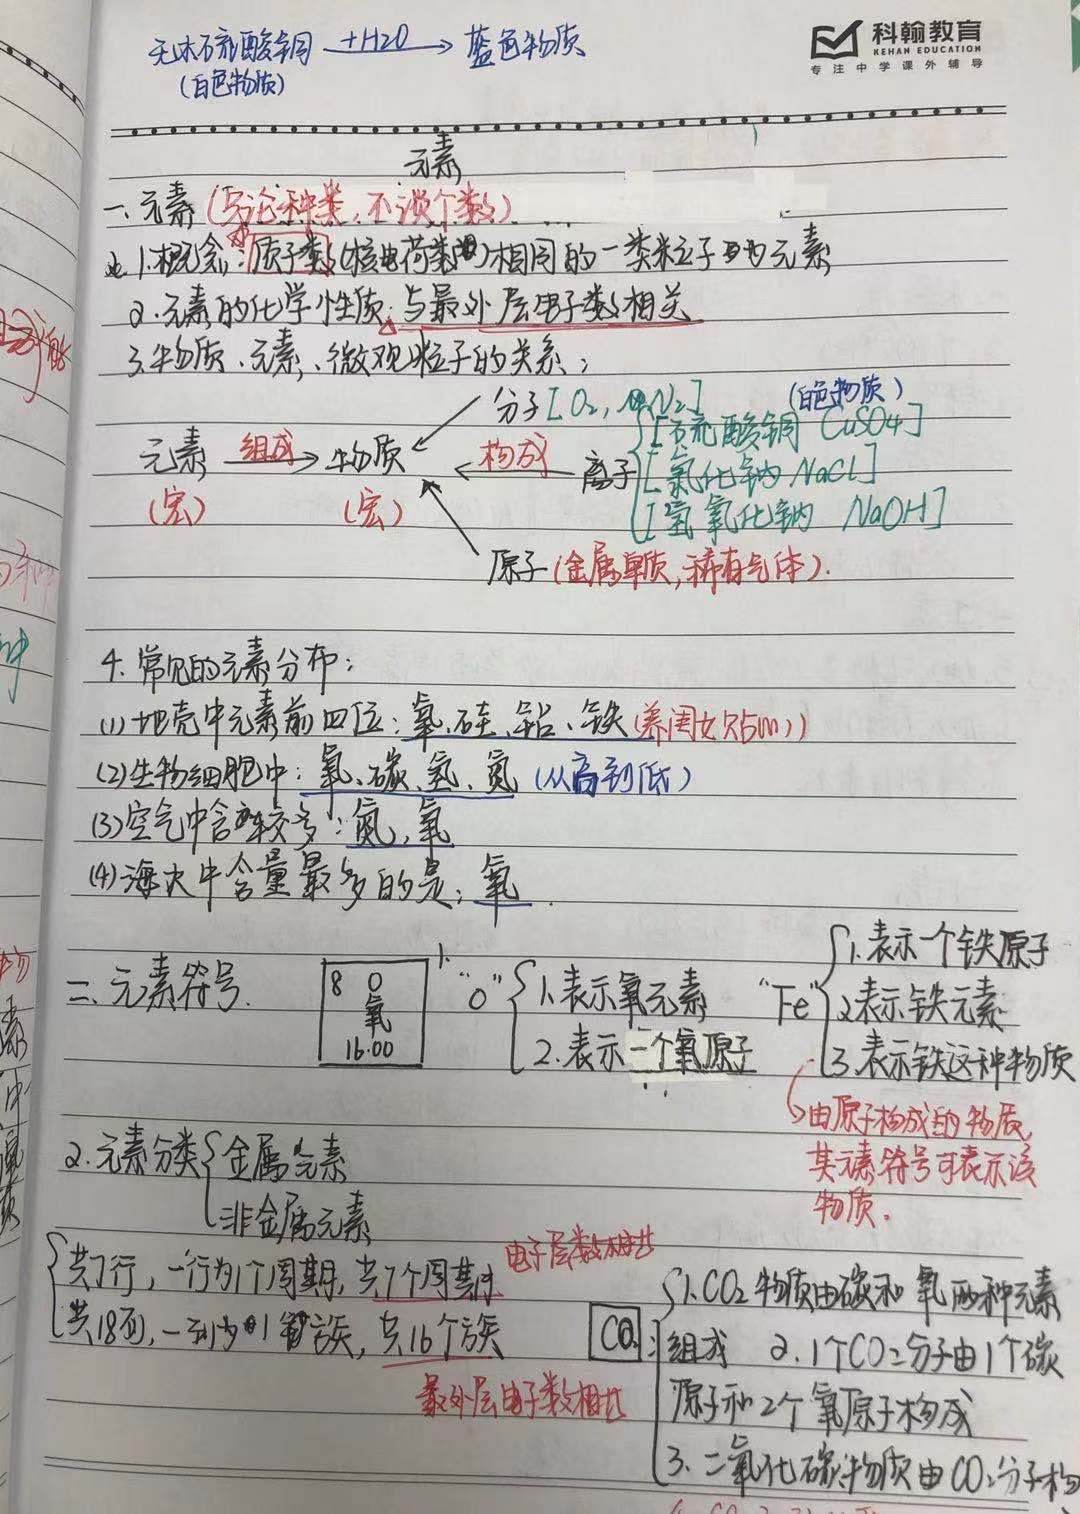 无水硫酸铜 +H2O 蓝色物质
(白色物质)
科翰教育
KEHAN EDUCATION
专注中学课外辅导
元素
一、元素(只论种类,不谈个数)
1.概念:质子数(核电荷数)相同的一类粒子为元素
2.元素的化学性质:与最外层电子数相关
3.物质、元素、微观粒子的关系:
分子[O2,N2]
(白色物质)
[硫酸铜 CuSO4]
元素 组成 物质 构成 离子 [氯化钠 NaCl]
(宏) (宏) [氢氧化钠 NaOH]
原子(金属单质,稀有气体).
4.常见的元素分布:
(1)地壳中元素前四位:氧、硅、铝、铁(养闺女
(2)生物细胞中:氧、碳、氢、氮(从高到低)
(3)空气中含较多:氮,氧
(4)海水中含量最多的是:氧.
二、元素符号.
8 O
氧
16.00
1.
"O" 1.表示氧元素
2.表示一个氧原子
"Fe" 1.表示一个铁原子
2.表示铁元素
3.表示铁这种物质
由原子构成的物质,
其元素符号可表示该
物质.
2.元素分类 金属元素
非金属元素
共7行,一行为1个周期,共7个周期 电子层数相比
共18列,一列为1族,共16个族
最外层电子数相比
CO2: 1.CO2物质由碳和氧两种元素
组成 2.1个CO2分子由1个碳
原子和2个氧原子构成
3.二氧化碳物质由CO2分子构